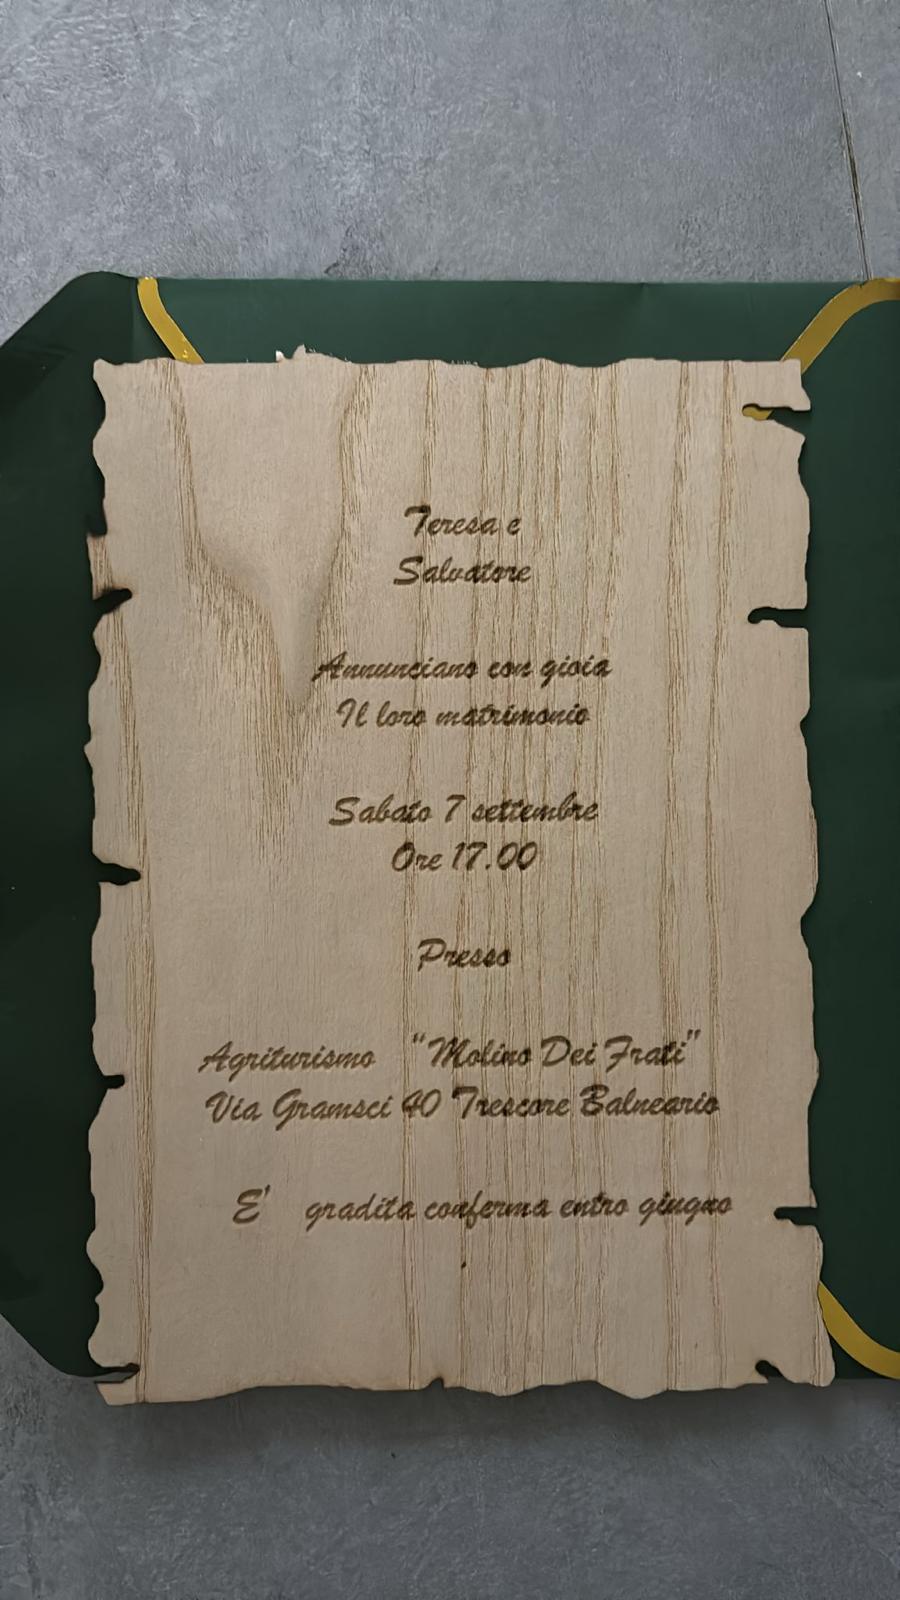 Teresa e
Salvatore
Annunciano con gioia
Il loro matrimonio
Sabato 7 settembre
Ore 17.00
Presso
Agriturismo "Molino Dei Frati"
Via Gramsci 40 Trescore Balneario
E' gradita conferma entro giugno